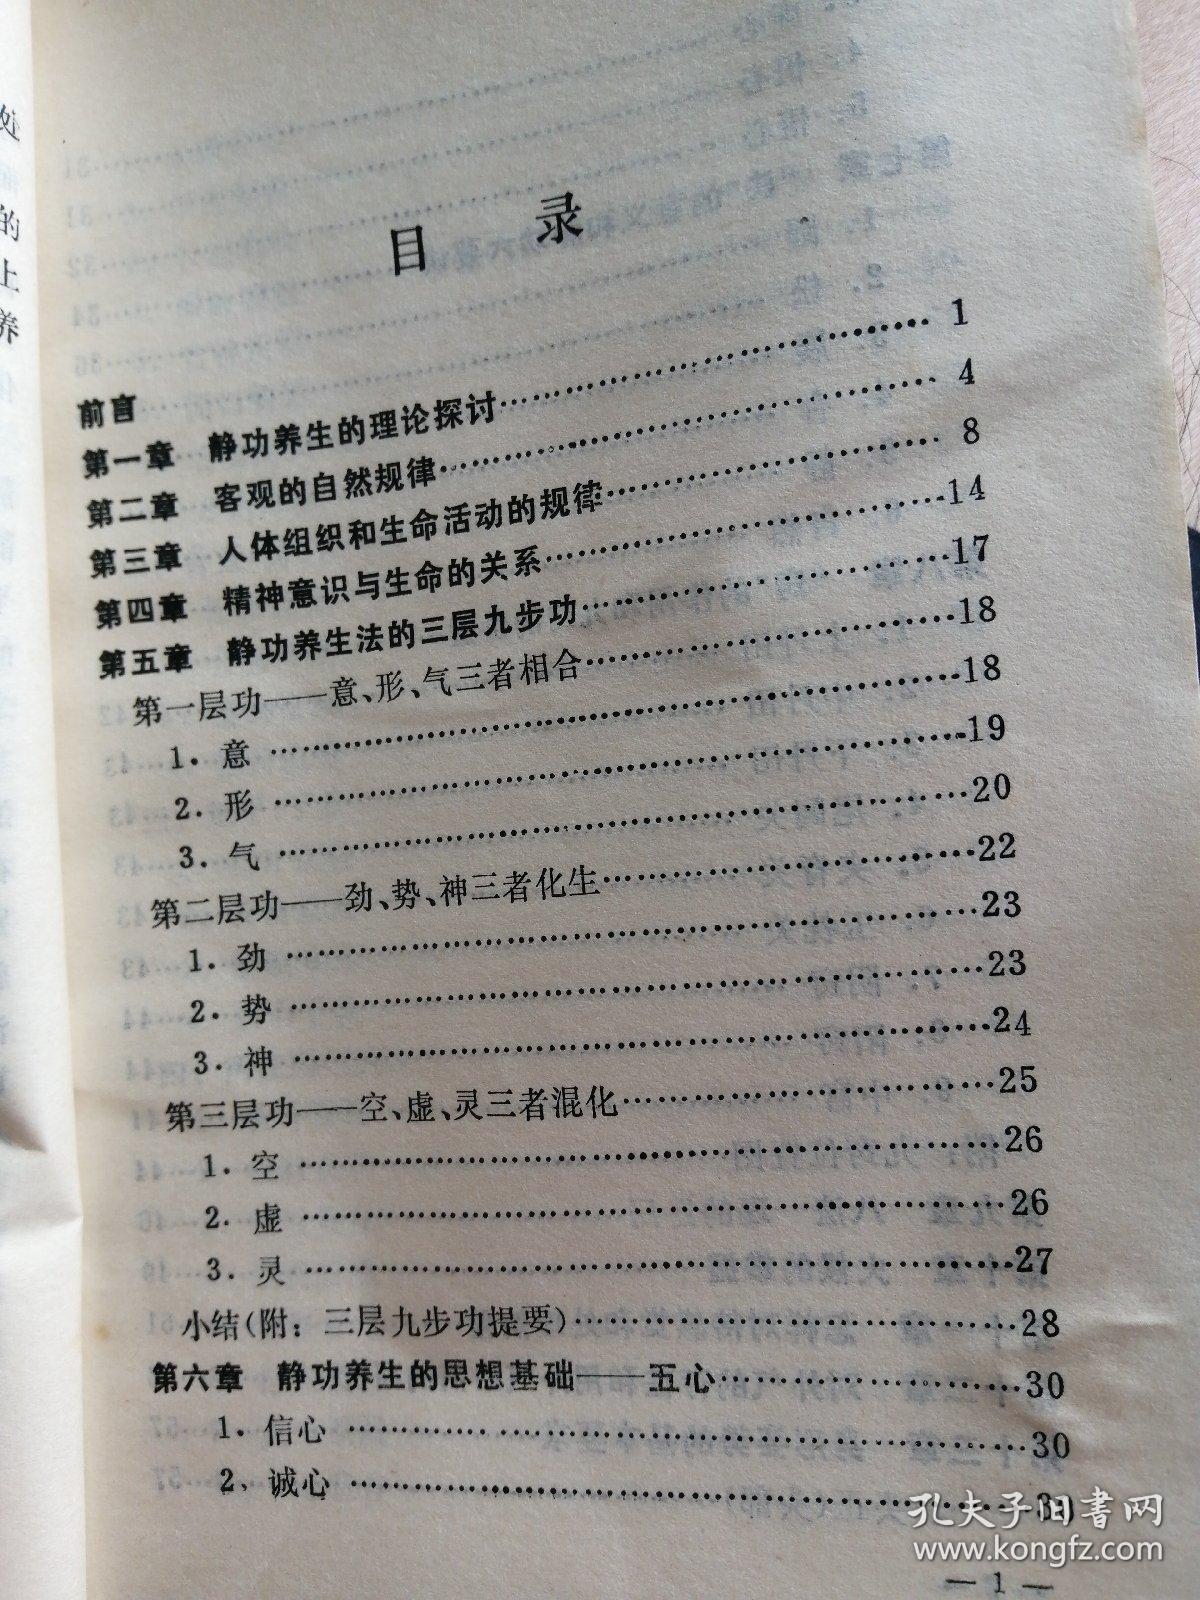 处
的
上
养
目 录
前言
第一章 静功养生的理论探讨…………………………1
第二章 客观的自然规律…………………………4
第三章 人体组织和生命活动的规律…………………………8
第四章 精神意识与生命的关系…………………………14
第五章 静功养生法的三层九步功…………………………17
第一层功——意、形、气三者相合…………………………18
1. 意…………………………18
2. 形…………………………19
3. 气…………………………20
第二层功——劲、势、神三者化生…………………………22
1. 劲…………………………23
2. 势…………………………23
3. 神…………………………24
第三层功——空、虚、灵三者混化…………………………25
1. 空…………………………26
2. 虚…………………………26
3. 灵…………………………27
小结(附：三层九步功提要)…………………………28
第六章 静功养生的思想基础——五心…………………………30
1. 信心…………………………30
2、诚心…………………………
孔夫子旧书网
www.kongfz.com
— 1 —